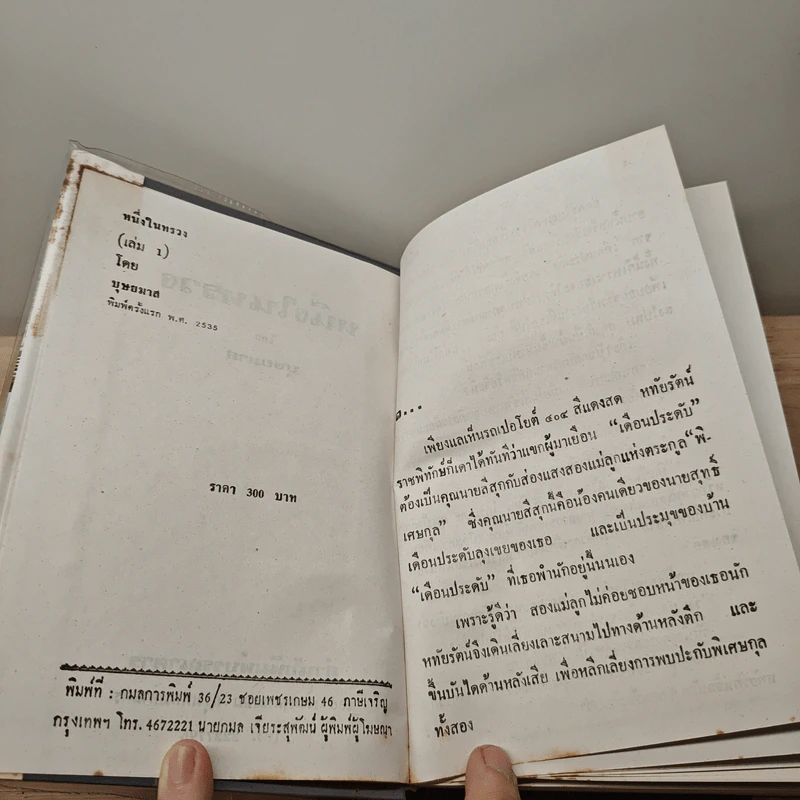 หนึ่งในทรวง
(เล่ม 1)
โดย
บุษยมาส
พิมพ์ครั้งแรก พ.ศ. 2535
ราคา 300 บาท
พิมพ์ที่ : กมลการพิมพ์ 36/23 ซอยเพชรเกษม 46 ภาษีเจริญ
กรุงเทพฯ โทร. 4672221 นายกมล เจียระสุพัฒน์ ผู้พิมพ์ผู้โฆษณา
๑...
เพียงแลเห็นรถเปอโยต์ ๔๐๔ สีแดงสด หทัยรัตน์
ราชพิทักษ์ก็เดาได้ทันทีว่าแขกผู้มาเยือน “เดือนประดับ”
ต้องเป็นคุณนายสีสุกกับส่องแสงสองแม่ลูกแห่งตระกูล “พิ-
เศษกุล” ซึ่งคุณนายสีสุกนี้คือน้องคนเดียวของนายสุทธิ์
เดือนประดับลุงเขยของเธอ และเป็นประมุขของบ้าน
“เดือนประดับ” ที่เธอพำนักอยู่นี้นั่นเอง
เพราะรู้ดีว่า สองแม่ลูกไม่ค่อยชอบหน้าของเธอนัก
หทัยรัตน์จึงเดินเลี่ยงเลาะสนามไปทางด้านหลังตึก และ
ขึ้นบันไดด้านหลังเสีย เพื่อหลีกเลี่ยงการพบปะกับพิเศษกุล
ทั้งสอง